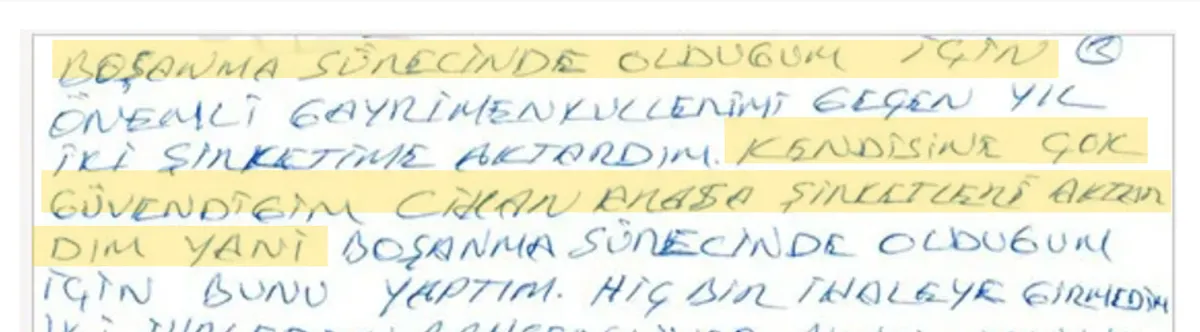 BOŞANMA SÜRECİNDE OLDUĞUM İÇİN ③
ÖNEMLİ GAYRİMENKULLERİMİ GEÇEN YIL
İKİ ŞİRKETİME AKTARDIM. KENDİSİNE ÇOK
GÜVENDİĞİM CİHAN ŞİRKETLERİ AKTAR
DIM YANİ BOŞANMA SÜRECİNDE OLDUĞUM
İÇİN BUNU YAPTIM. HİÇ BİR İHALEYE GİRMEDİM
İKİ